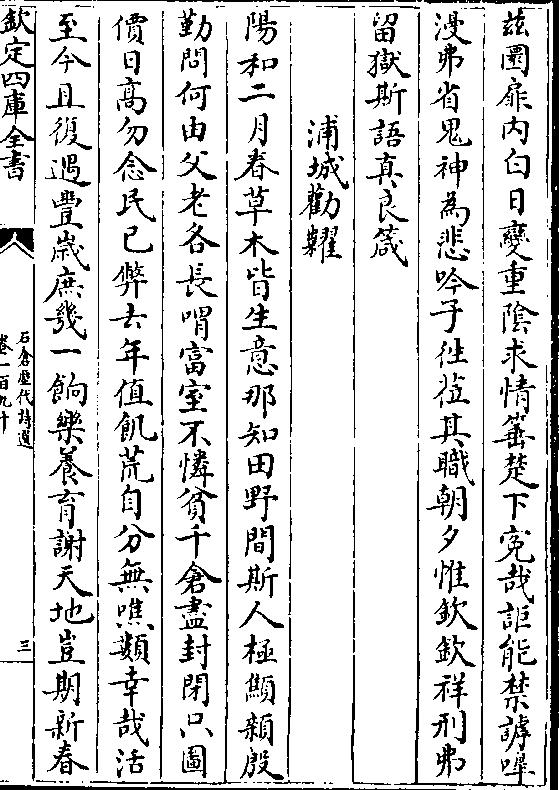 茲圜扉内白日變重陰求情箠楚下寃哉詎能禁謼嘷
漫弗省鬼神為悲吟子徃莅其職朝夕惟欽欽祥刑弗
留獄斯語真良箴
浦城勸糶
陽和二月春草木皆生意那知田野間斯人極顦顇殷
勤問何由父老各長喟富室不憐貧千倉盡封閉只圖
價日髙勿念民已弊去年值飢荒自分無噍類幸哉活
至今且復遇豐歳庶幾一餉樂養育謝天地豈期新春
欽定四庫全書
石倉歴代詩選
卷一百九十
三